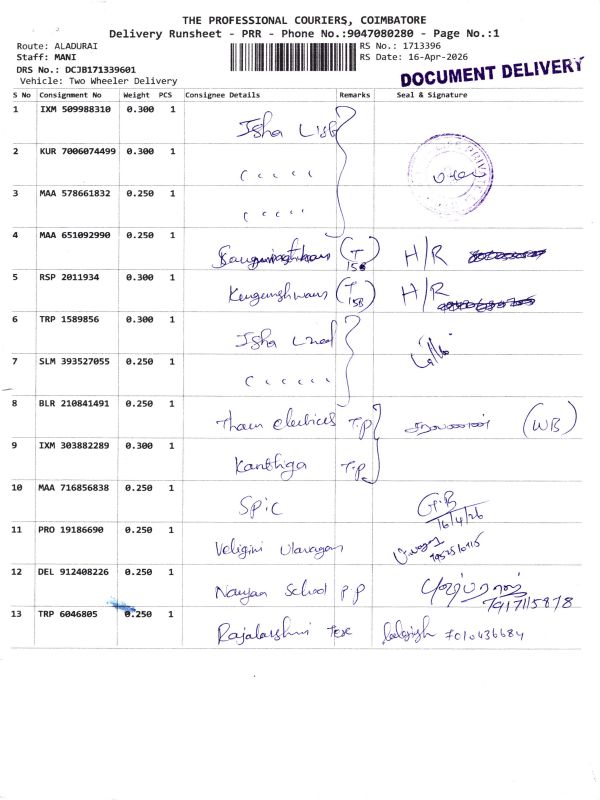 THE PROFESSIONAL COURIERS, COIMBATORE
Delivery Runsheet - PRR - Phone No.:9047080280 - Page No.:1
Route: ALADURAI
RS No.: 1713396
Staff: MANI
RS Date: 16-Apr-2026
DRS No.: DCJB171339601
DOCUMENT DELIVERY
Vehicle: Two Wheeler Delivery
S No Consignment No Weight PCS Consignee Details Remarks Seal & Signature
1 IXM 509988310 0.300 1 Isha
2 KUR 7006074499 0.300 1
3 MAA 578661832 0.250 1
4 MAA 651092990 0.250 1 H/R
5 RSP 2011934 0.300 1 (T 158) H/R
6 TRP 1589856 0.300 1 Isha
7 SLM 393527055 0.250 1
8 BLR 210841491 0.250 1 T.P சரவணன் (WB)
9 IXM 303882289 0.300 1 Kanthiga T.P
10 MAA 716856838 0.250 1 Spic G.B 16/4/26
11 PRO 19186690 0.250 1
12 DEL 912408226 0.250 1 School P.P 7917115878
13 TRP 6046805 0.250 1 7010636684